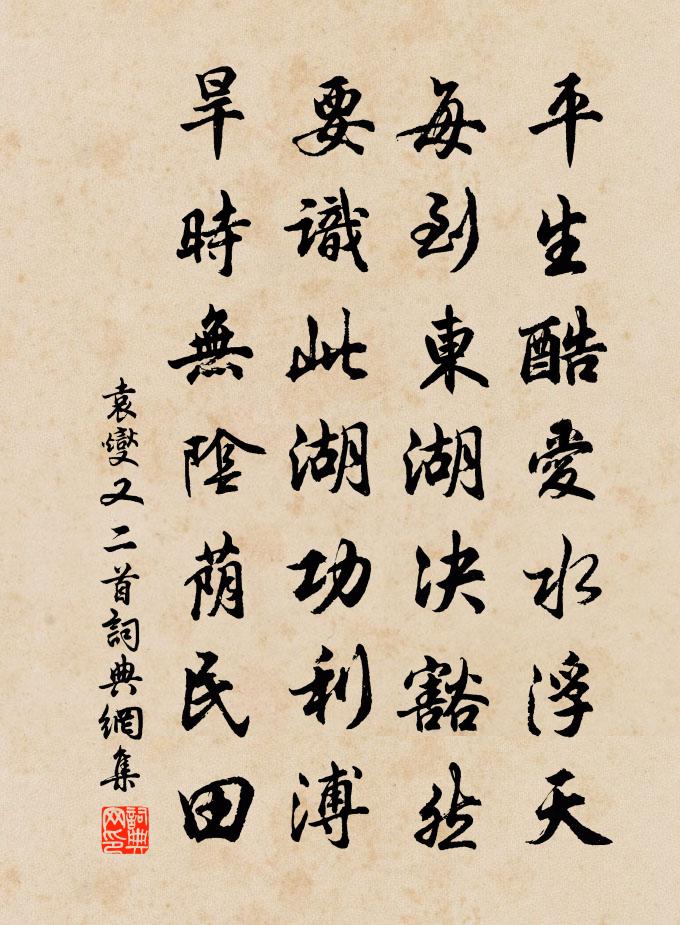 平生酷愛水浮天
每到東湖決豁然
要識此湖功利溥
旱時無陰蔭民田
袁燮又二首詞典網集
詞典网印